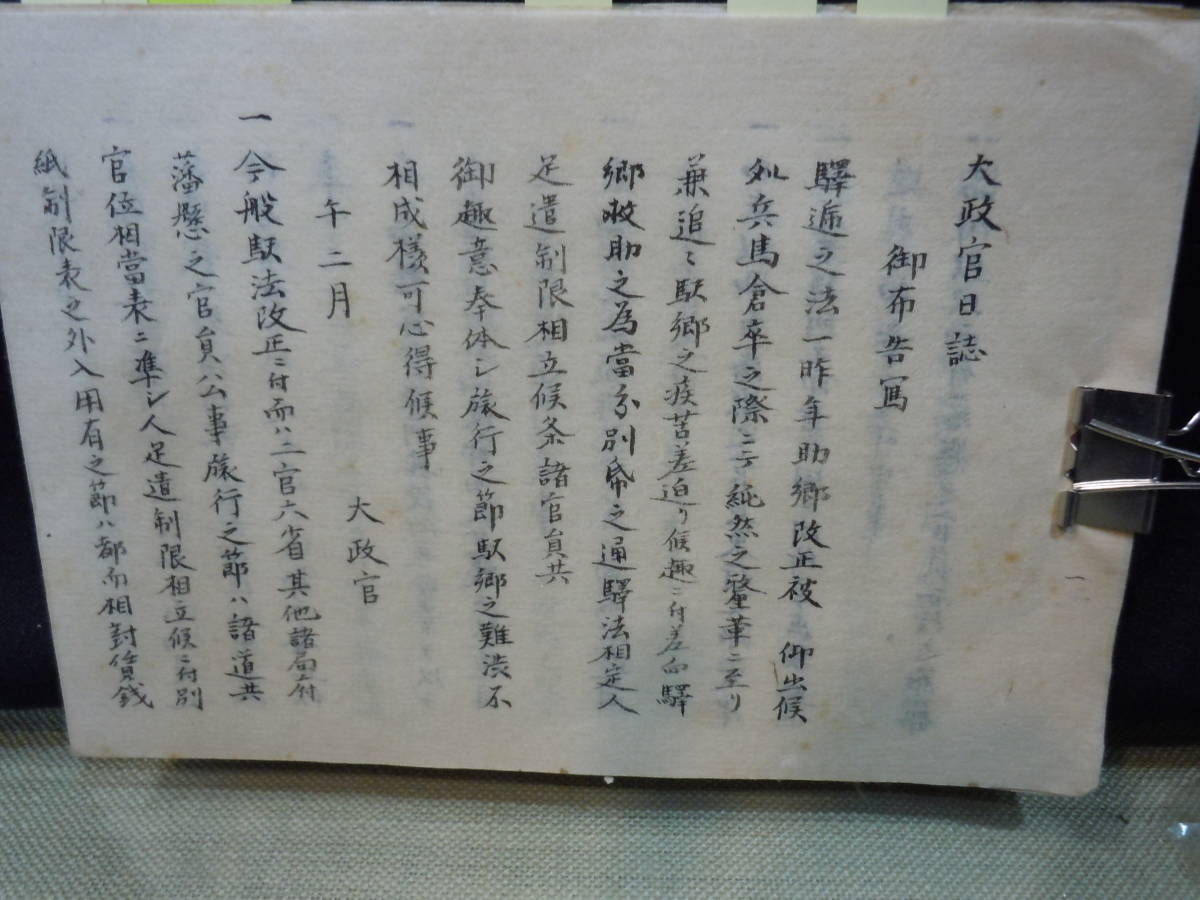 大政官日誌
御布告写
驛逓之法一昨年助郷改正被 仰出候
処兵馬倉卒之際ニテ純然之釐革ニ至リ
兼追〻駅郷之疾苦差迫リ候趣ニ付差向驛
郷救助之為當分別帋之通驛法相定人
足遣制限相立候条諸官員共
御趣意奉体シ旅行之節駅郷之難渋不
相成様可心得候事
午二月
大政官
一 今般駅法改正ニ付而ハ二官六省其他諸局府
藩縣之官員公事旅行之節ハ諸道共
官位相當表ニ準シ人足遣制限相立候ニ付別
紙制限表之外入用有之節ハ都而相對賃銭
一